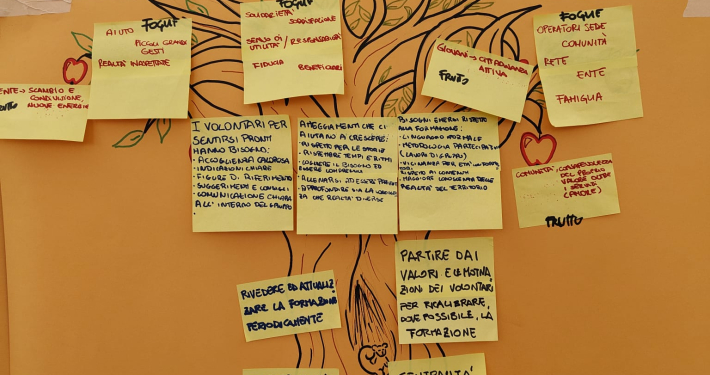 FOGLIE
AIUTO
PICCOLI GRANDI
GESTI
REALTÀ INASPETTATE
FOGLIE
SODDISFAZIONE
SENSO DI
UTILITÀ / RESPONSABILITÀ
FIDUCIA BENEFICIARI
GIOVANI → CITTADINANZA
ATTIVA
FRUTTO
FOGLIE
OPERATORI SEDE
COMUNITÀ
RETE
ENTE
FAMIGLIA
ENTE → SCAMBIO E
CONDIVISIONE,
NUOVE ENERGIE
FRUTTO
I VOLONTARI PER
SENTIRSI PRONTI
HANNO BISOGNO:
• ACCOGLIENZA CALOROSA
• INDICAZIONI CHIARE
• FIGURE DI RIFERIMENTO
• SUGGERIMENTI E CONSIGLI
• COMUNICAZIONE CHIARA
ALL'INTERNO DEL GRUPPO
ATTEGGIAMENTI CHE CI
AIUTANO A CRESCERE:
• RISPETTO PER LE STORIE
• RISPETTARE TEMPI E RITMI
• COGLIERE IL BISOGNO DI
ESSERE
• ALLENARSI
• APPROFONDIRE SIA LA
SIA CHE REALTÀ DIVERSE
BISOGNI EMERSI RISPETTO
ALLA FORMAZIONE:
• LINGUAGGIO INFORMALE
• METODOLOGIA PARTECIPATIVA
(LAVORI DI GRUPPO)
• VICINANZA PER ETÀ
RISPETTO AI CONTENUTI
• MAGGIORE CONOSCENZA DELLE
REALTÀ DEL TERRITORIO
COMUNITÀ: CONSAPEVOLEZZA
DEL PROPRIO
VALORE OLTRE
I SERVIZI
FRUTTO
RIVEDERE ED ATTUALIZ
ZARE LA FORMAZIONE
PERIODICAMENTE
PARTIRE DAI
VALORI E LE MOTIVA
ZIONI DEI VOLONTARI
PER RICALIBRARE,
DOVE POSSIBILE, LA
FORMAZIONE
CENTRALITÀ